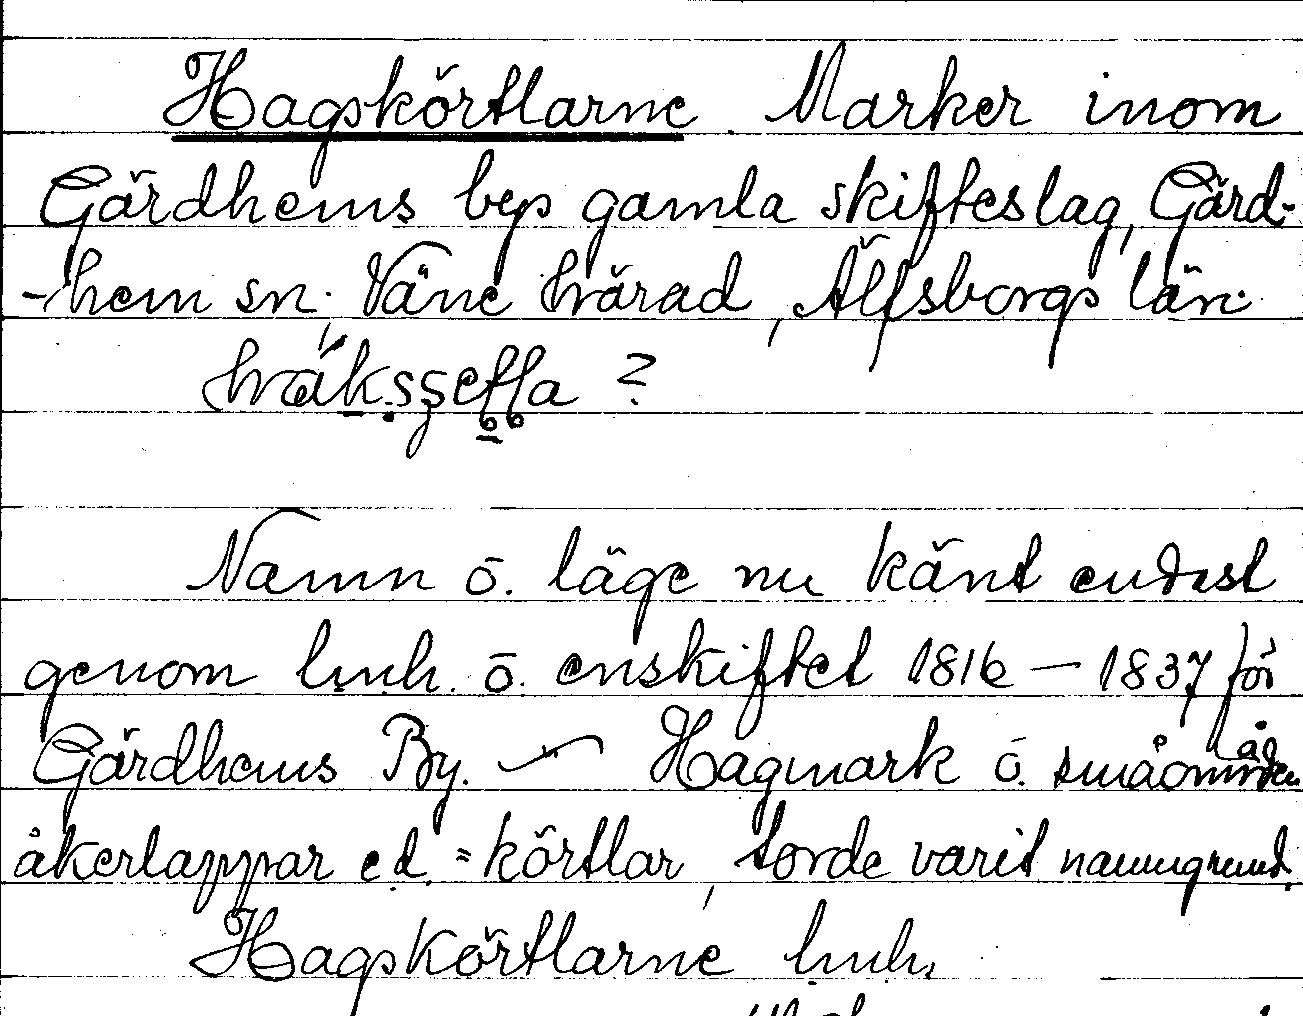 Hagskörtlarne. Marker inom
Gärdhems bys gamla skifteslag, Gärd-
-hem sn. Väne härad, Älfsborgs län.
?
Namn o. läge nu känt endast
genom lmh. o. enskiftet 1816 — 1837 för
Gärdhems By. — Hagmark o. småområden
åkerlappar e.d. = körtlar, torde varit namngrund.
Hagskörtlarne lmh.